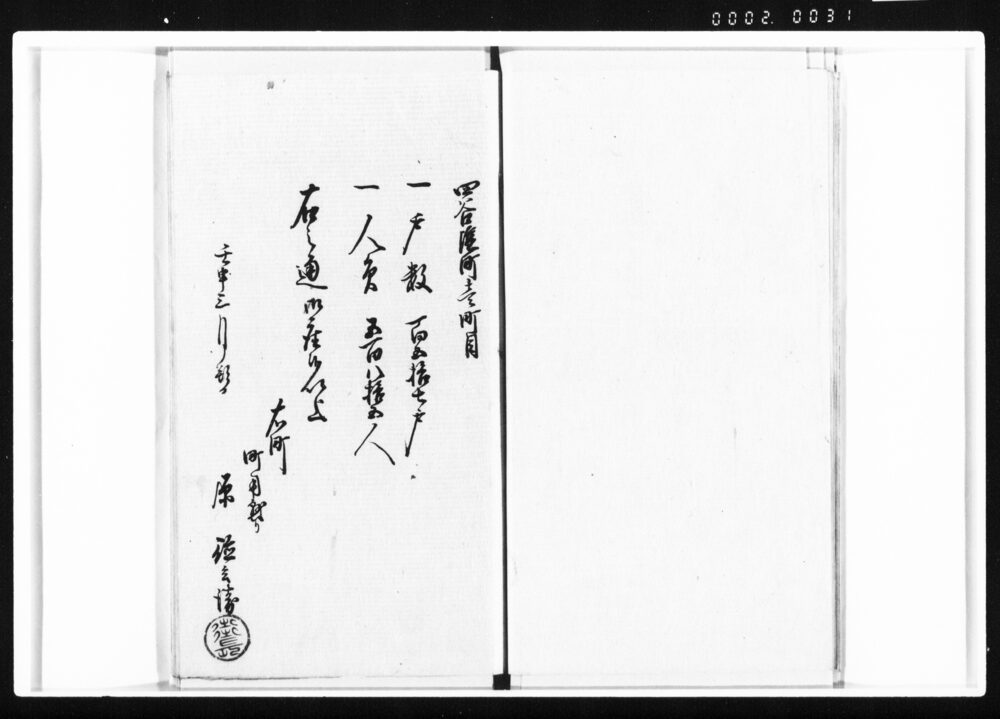 0002. 0031
四谷湊町壱町目
一戸数 百五拾七戸
一人員 五百八拾五人
右之通御座候以上
右町
町用掛り
壬申三月
原